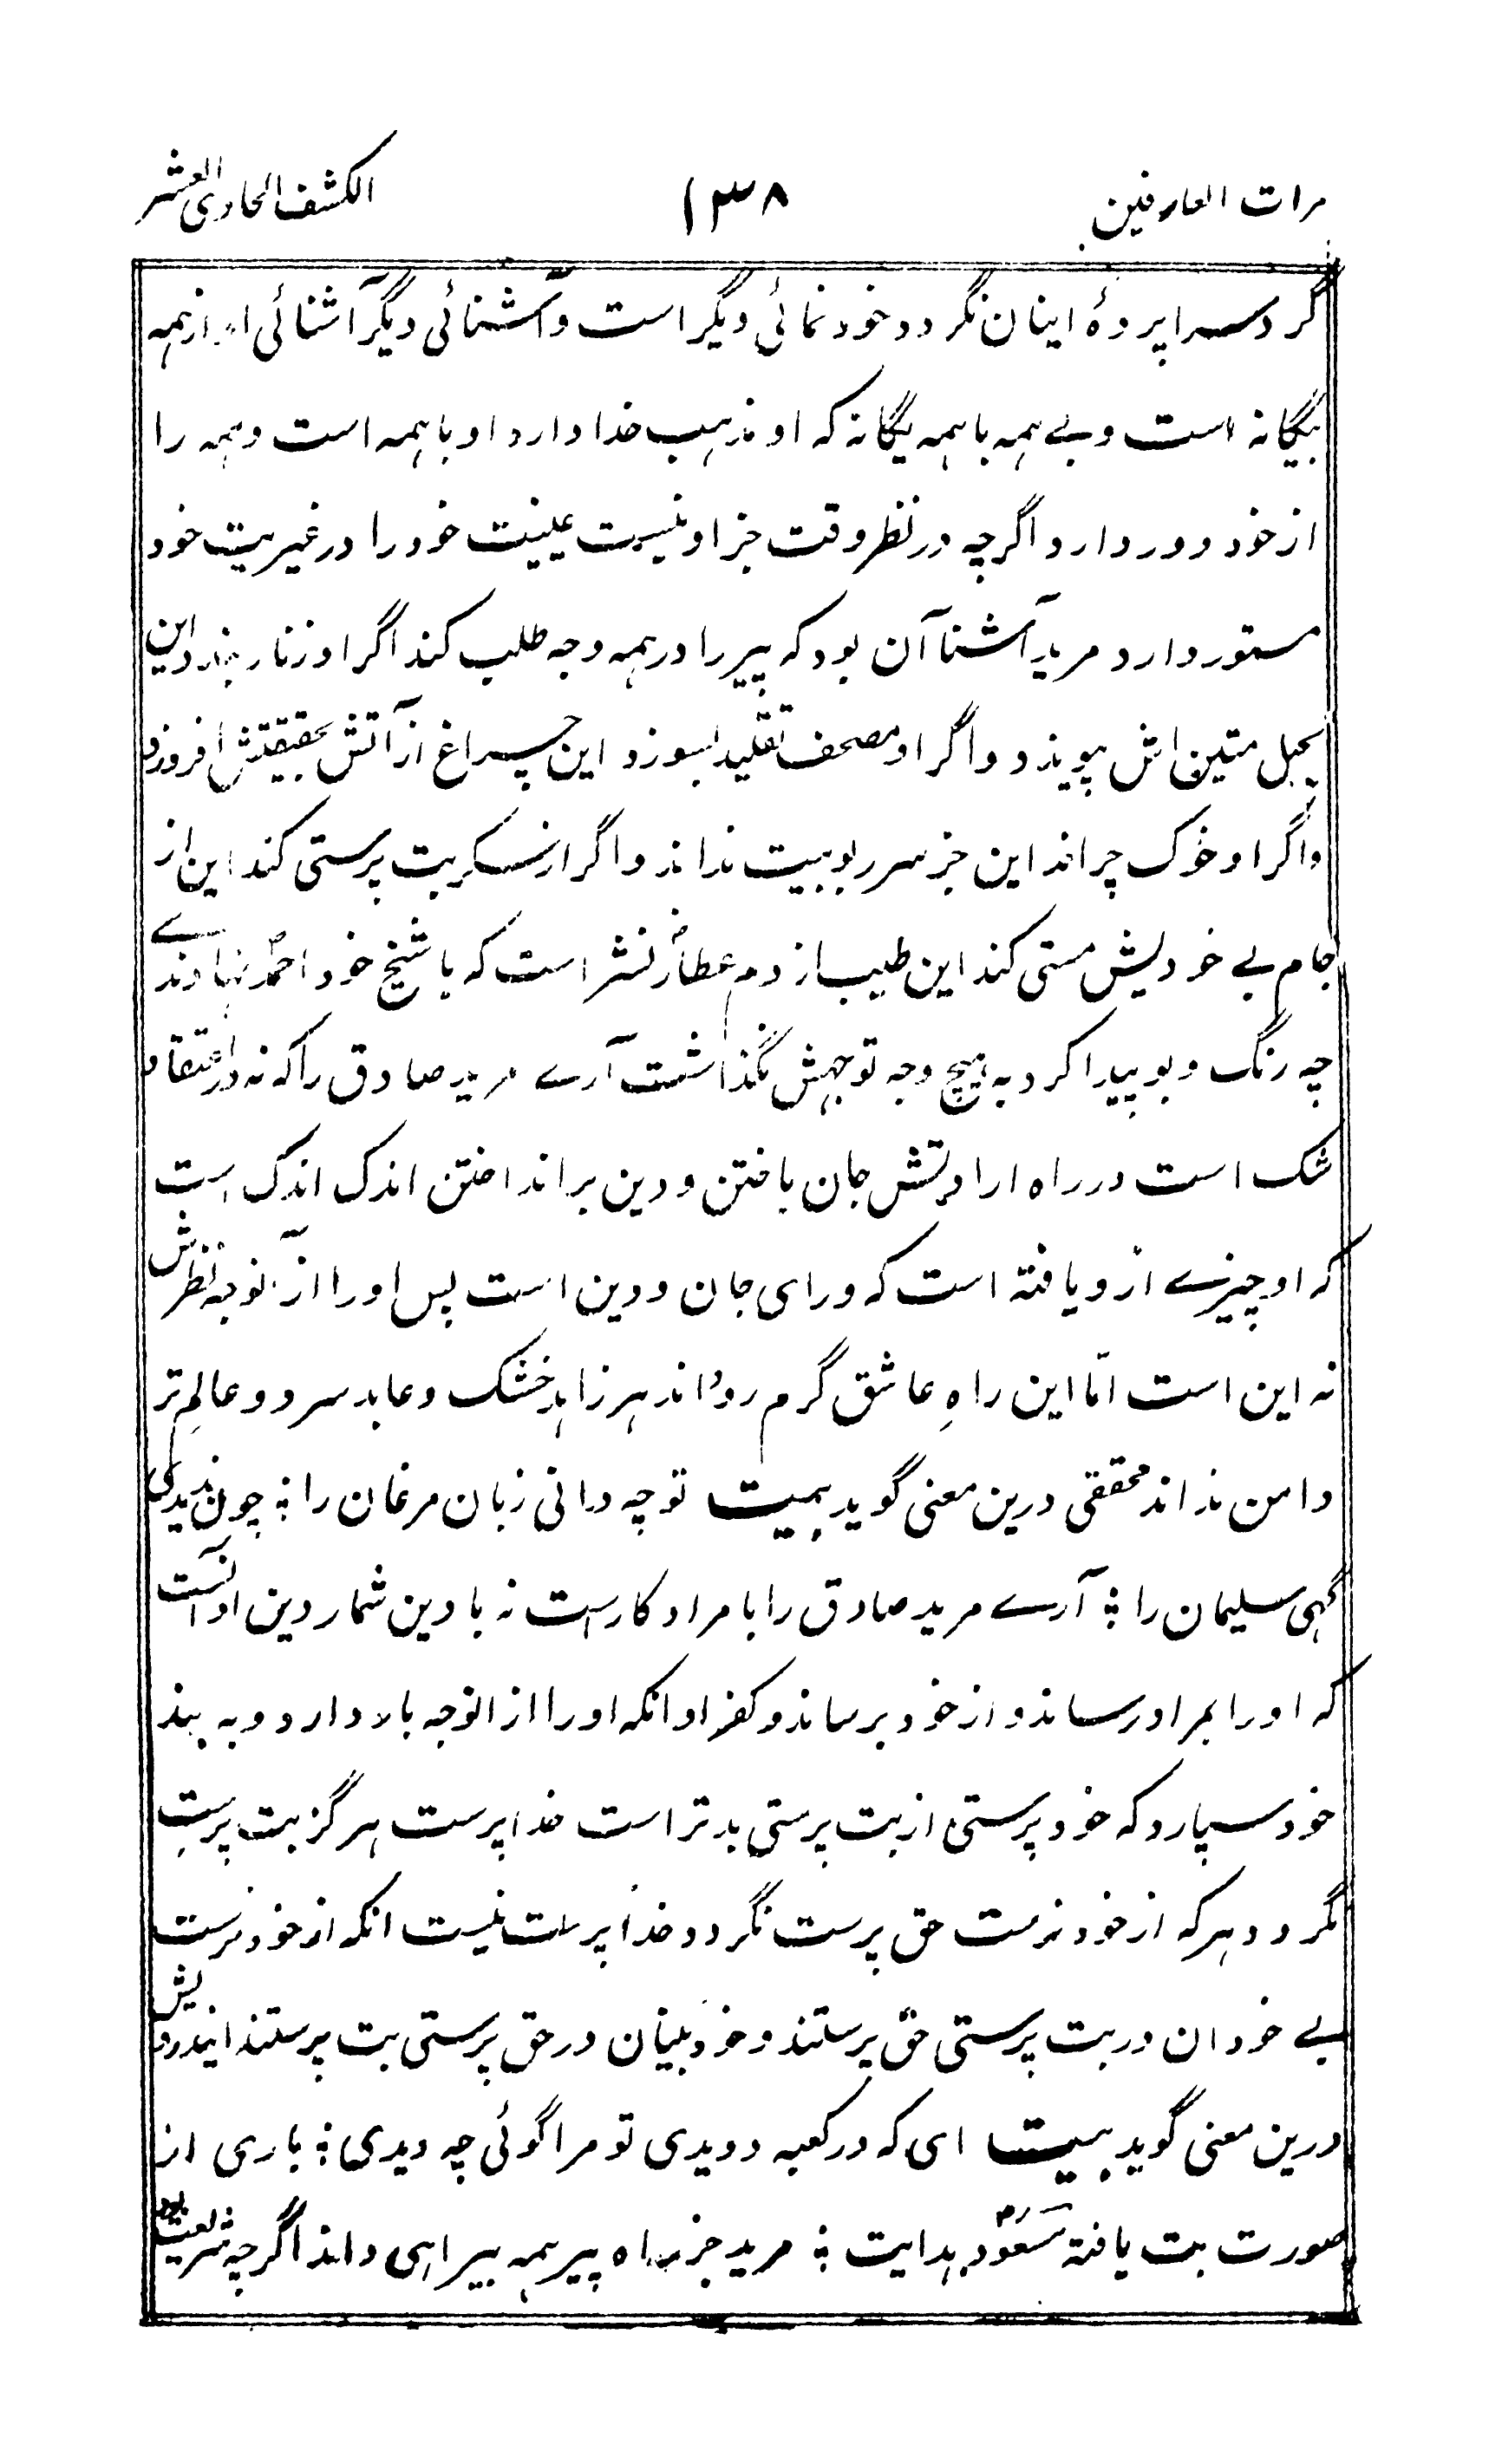 مرات العارفین ۱۳۸ الکشف الحادی العشر
گرد سراپردهٔ اینان نگردد خودنمائی دیگر است و آشنائی دیگر آشنائی او از همه
بیگانه است و بے همه با همه یگانه که او مذهب خدا دارد او با همه است و همه را
از خود دور دارد اگرچه در نظر وقت جز او نیست عینیت خود را در غیریت خود
مستور دارد مرید آشنا آن بود که پیر را در همه وجه طلب کند اگر او زنار بندد این
بحبل متین اش پیوندد و اگر او مصحف تقلید بسوزد این چراغ از آتش تحقیقش افروزد
و اگر او خوک چراند این جز سر ربوبیت نداند و اگر از سکر بت پرستی کند این از
جام بے خودیش مستی کند این طیب از دم عطار نشر است که با شیخ خود احمد نهاوندے
چه رنگ و بو پیدا کرد به هیچ وجه توجهش نگذاشت آرے مرید صادق را که نه در اعتقاد
شک است در راه ارادتش جان باختن و دین بر انداختن اندک اندک است
که او چیزے ازو یافته است که ورای جان و دین است پس او را از آنوجه نظرش
نه این است امّا این راهِ عاشق گرم رو داند هر زاهد خشک و عابد سرد و عالمِ تر
دامن نداند محققی درین معنی گوید بیت تو چه دانی زبان مرغان را ؛ چون ندیدی
گهی سلیمان را ؛ آرے مرید صادق را با مراد کار است نه با دین شمار دین او آنست
که او را بمراد رساند و از خود برهاند و کفر او انکه او را از انوجه بالا دارد و به بند
خود سپارد که خود پرستی از بت پرستی بدتر است خدا پرست هرگز بت پرست
نگردد و هر که از خود نرست حق پرست نگردد خدا پرست نیست انکه از خود نرست
بے خودان در بت پرستی حق پرستند و خود بینان در حق پرستی بت پرستند
درین معنی گوید بیت ای که در کعبه دویدی تو مرا گوئی چه دیدی ؛ باری از
صورت بت یافته مسعود هدایت ؛ مرید جز راه پیر همه بیراهی داند اگرچه شریعت بود